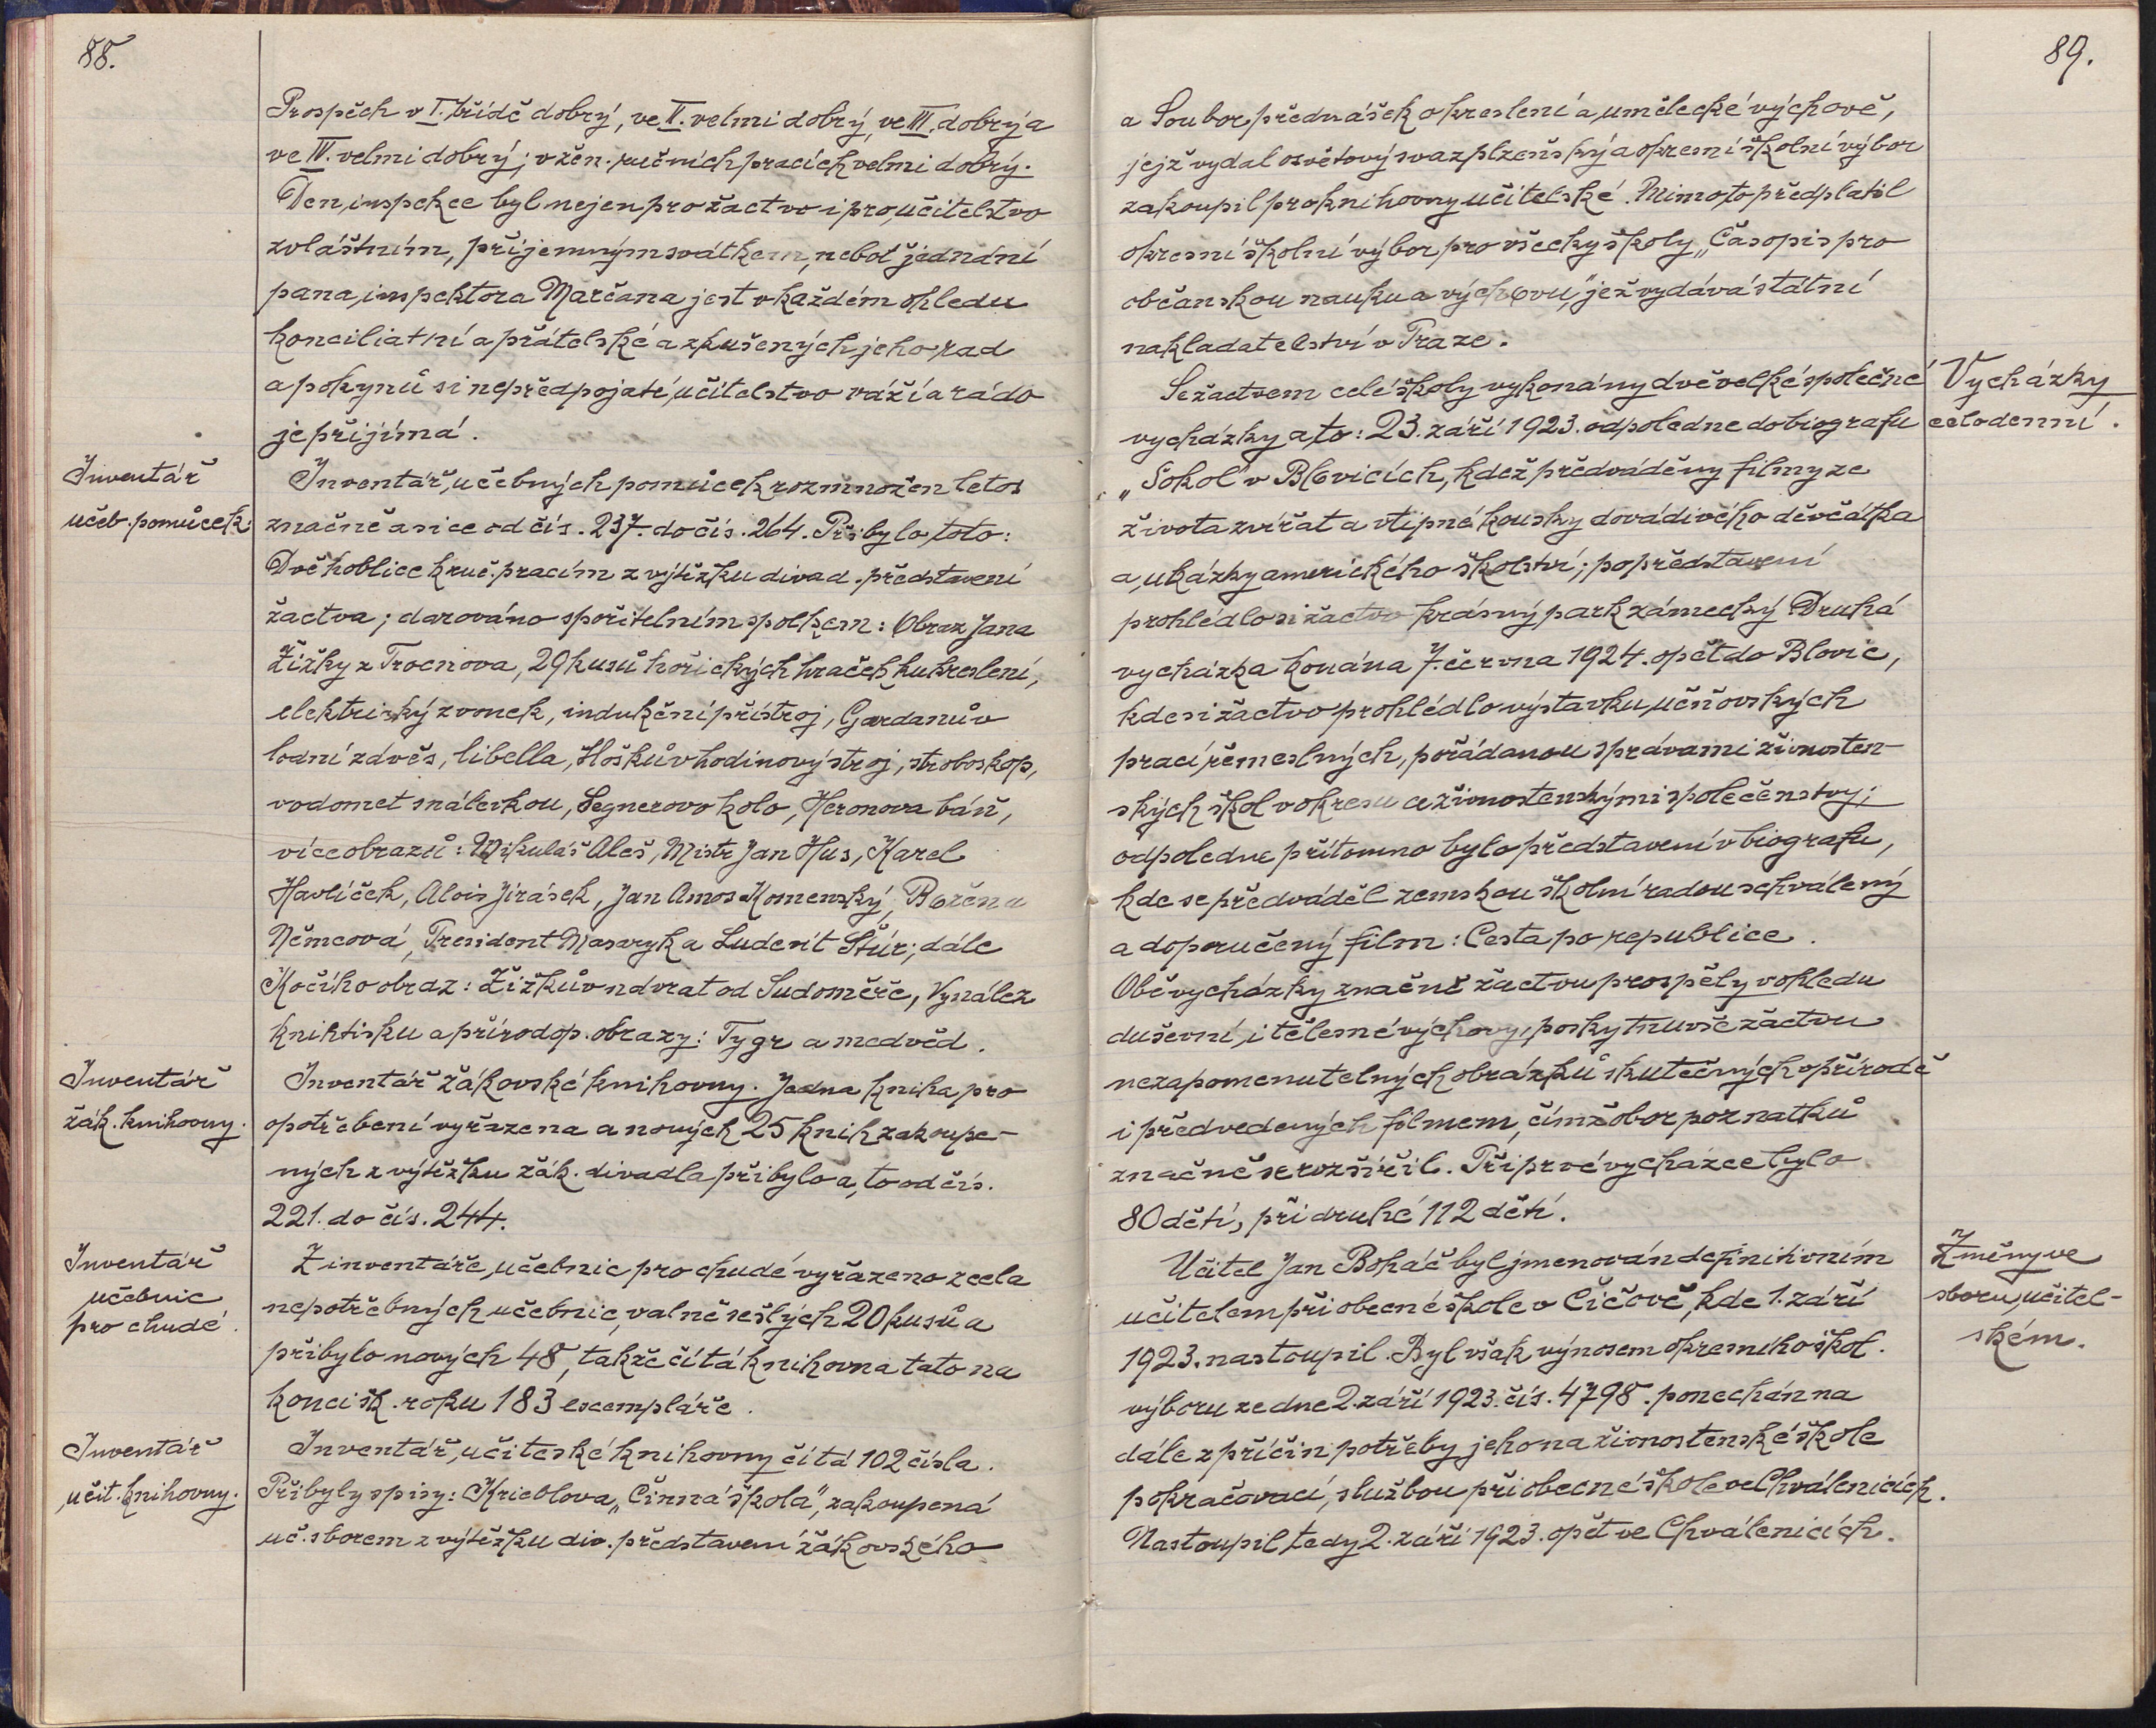 88.
Prospěch v I. třídě dobrý, ve II. velmi dobrý, ve III. dobrý a
ve IV. velmi dobrý; v žen. ručních pracích velmi dobrý.
Den inspekce byl nejen pro žactvo i pro učitelstvo
zvláštním, příjemným svátkem, neboť jednání
pana inspektora Marčana jest v každém ohledu
konciliatní a přátelské a zkušených jeho rad
a pokynů si nepředpojaté učitelstvo váží a rádo
je přijímá.
Inventář
učeb. pomůcek:
Inventář učebných pomůcek rozmnožen letos
značně a sice od čís. 237. do čís. 264. Přibylo toto:
Dvě hoblice k ruč. pracím z výtěžku divad. představení
žactva; darováno spořitelním spolkem: Obraz Jana
Žižky z Trocnova, 29 kusů hořických hraček ku kreslení,
elektrický zvonek, indukční přístroj, Gardanův
lodní závěs, libella, Hoškův hodinový stroj, stroboskop,
vodomet s nálevkou, Segnerovo kolo, Heronova báň,
více obrazů: Mikuláš Aleš, Mistr Jan Hus, Karel
Havlíček, Alois Jirásek, Jan Amos Komenský, Božena
Němcová, President Masaryk a Ludevít Štúr; dále
Kočího obraz: Žižkův návrat od Sudoměře, Vynález
knihtisku a přírodop. obrazy: Tygr a medvěd.
Inventář
žák. knihovny.
Inventář žákovské knihovny. Jedna kniha pro
opotřebení vyřazena a nových 25 knih zakoupe-
ných z výtěžku žák. divadla přibylo a to od čís.
221. do čís. 244.
Inventář
učebnic
pro chudé.
Z inventáře učebnic pro chudé vyřazeno zcela
nepotřebných učebnic, valně sešlých 20 kusů a
přibylo nových 48, takže čítá knihovna tato na
konci šk. roku 183 exempláře.
Inventář
učit. knihovny.
Inventář učiteské knihovny čítá 102 čísla.
Přibyly spisy: Krieblova „Činná škola", zakoupená
uč. sborem z výtěžku div. představení žákovského
89.
a Soubor přednášek o kreslení a umělecké výchově,
jejž vydal osvětový svaz plzeňský a okresní školní výbor
zakoupil pro knihovny učitelské. Mimo to předplatil
okresní školní výbor pro všecky školy „Časopis pro
občanskou nauku a výchovu," jež vydává státní
nakladatelství v Praze.
Vycházky
celodenní.
Se žactvem celé školy vykonány dvě velké společné
vycházky a to: 23. září 1923. odpoledne do biografu
„Sokol" v Blovicích, kdež předváděny filmy ze
života zvířat a vtipné kousky dovádivého děvčátka
a ukázky amerického školství; po představení
prohlédlo si žactvo krásný park zámecký. Druhá
vycházka konána 7. června 1924. opět do Blovic,
kde si žactvo prohlédlo výstavku učňovských
prací řemeslných, pořádanou správami živnosten-
ských škol v okresu a živnostenskými společenstvy;
odpoledne přítomno bylo představení v biografu,
kde se předváděl zemskou školní radou schválený
a doporučený film: Cesta po republice.
Obě vycházky značně žactvu prospěly v ohledu
duševní i tělesné výchovy, poskytnuvše žactvu
nezapomenutelných obrázků skutečných o přírodě
i předvedených filmem, čímž obor poznatků
značně se rozšířil. Při prvé vycházce bylo
80 dětí, při druhé 112 dětí.
Změny ve
sboru učitel-
ském.
Učitel Jan Boháč byl jmenován definitivním
učitelem při obecné škole v Čičově, kde 1. září
1923. nastoupil. Byl však výnosem okresního škol.
výboru ze dne 2. září 1923. čís. 4798. ponechán na
dále z příčin potřeby jeho na živnostenské škole
pokračovací, službou při obecné škole ve Chválenicích.
Nastoupil tedy 2. září 1923. opět ve Chválenicích.